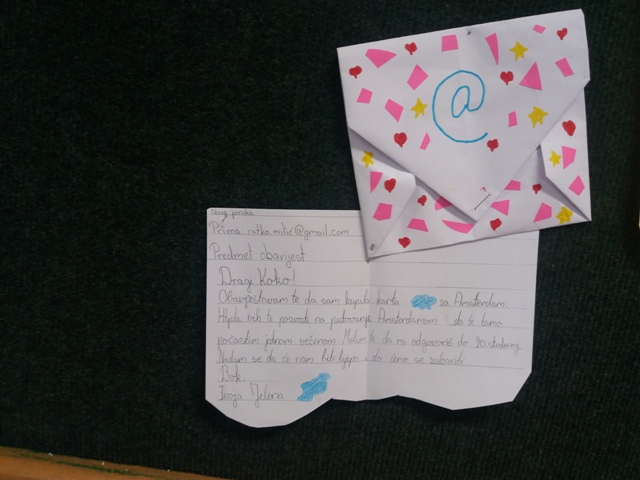 @
Nova poruka
Prima ratko.milić@gmail.com
Predmet obavijest
Dragi Koko!
Obavještavam te da sam kupila kartu za Amsterdam.
Htjela bih te pozvati na putovanje Amsterdamom da te tamo
počastim jednom večerom. Molim te da mi odgovoriš do 20. studenog.
Nadam se da će nam biti lijepo i da ćemo se zabaviti.
Bok.
Tvoja Jelena